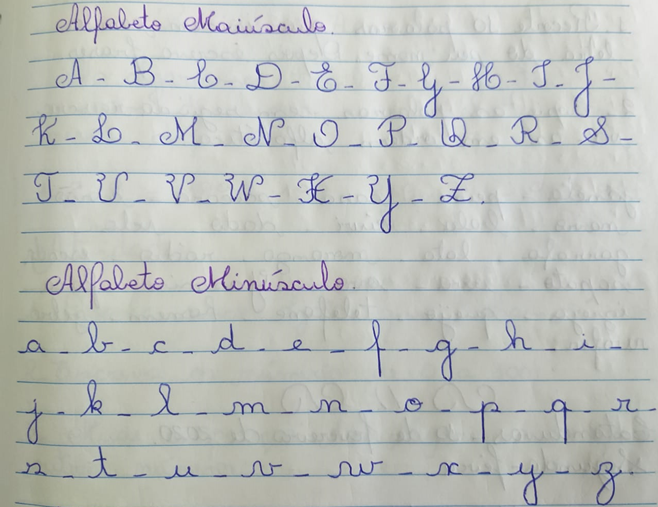 Alfabeto Maiúsculo.
A - B - C - D - E - F - G - H - I - J -
K - L - M - N - O - P - Q - R - S -
T - U - V - W - X - Y - Z.
Alfabeto Minúsculo.
a - b - c - d - e - f - g - h - i -
j - k - l - m - n - o - p - q - r -
s - t - u - v - w - x - y - z.